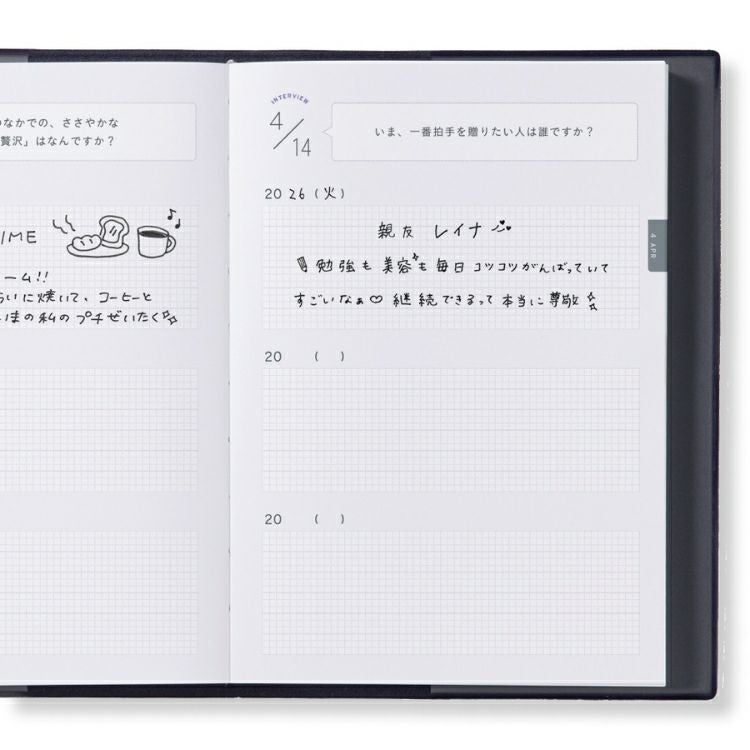 のなかでの、ささやかな
贅沢」はなんですか?
IME
ーム!!
らいに焼いて、コーヒーと
いまの私のプチぜいたく
INTERVIEW
4/14
いま、一番拍手を贈りたい人は誰ですか?
2026(火)
親友 レイナ
勉強も美容も毎日コツコツがんばっていて
すごいなぁ♡ 継続できるって本当に尊敬
20 ( )
20 ( )
4 APR